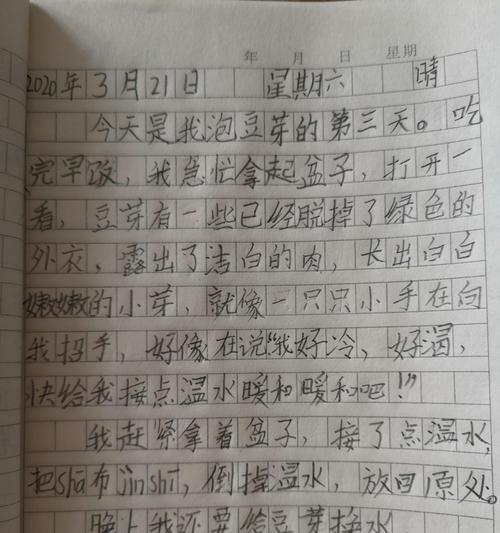 年 月 日 星期
2020年3月21日 星期六 晴
今天是我泡豆芽的第三天。吃
完早饭，我急忙拿起盆子，打开一
看，豆芽有一些已经脱掉了绿色的
外衣，露出了洁白的肉，长出白白
嫩嫩的小芽，就像一只只小手在向
我招手，好像在说“我好冷，好渴，
快给我接点温水暖和暖和吧！”
我赶紧拿着盆子，接了点温水，
把shā布jìnshī，倒掉温水，放回原处。
晚上我还要给豆芽换水